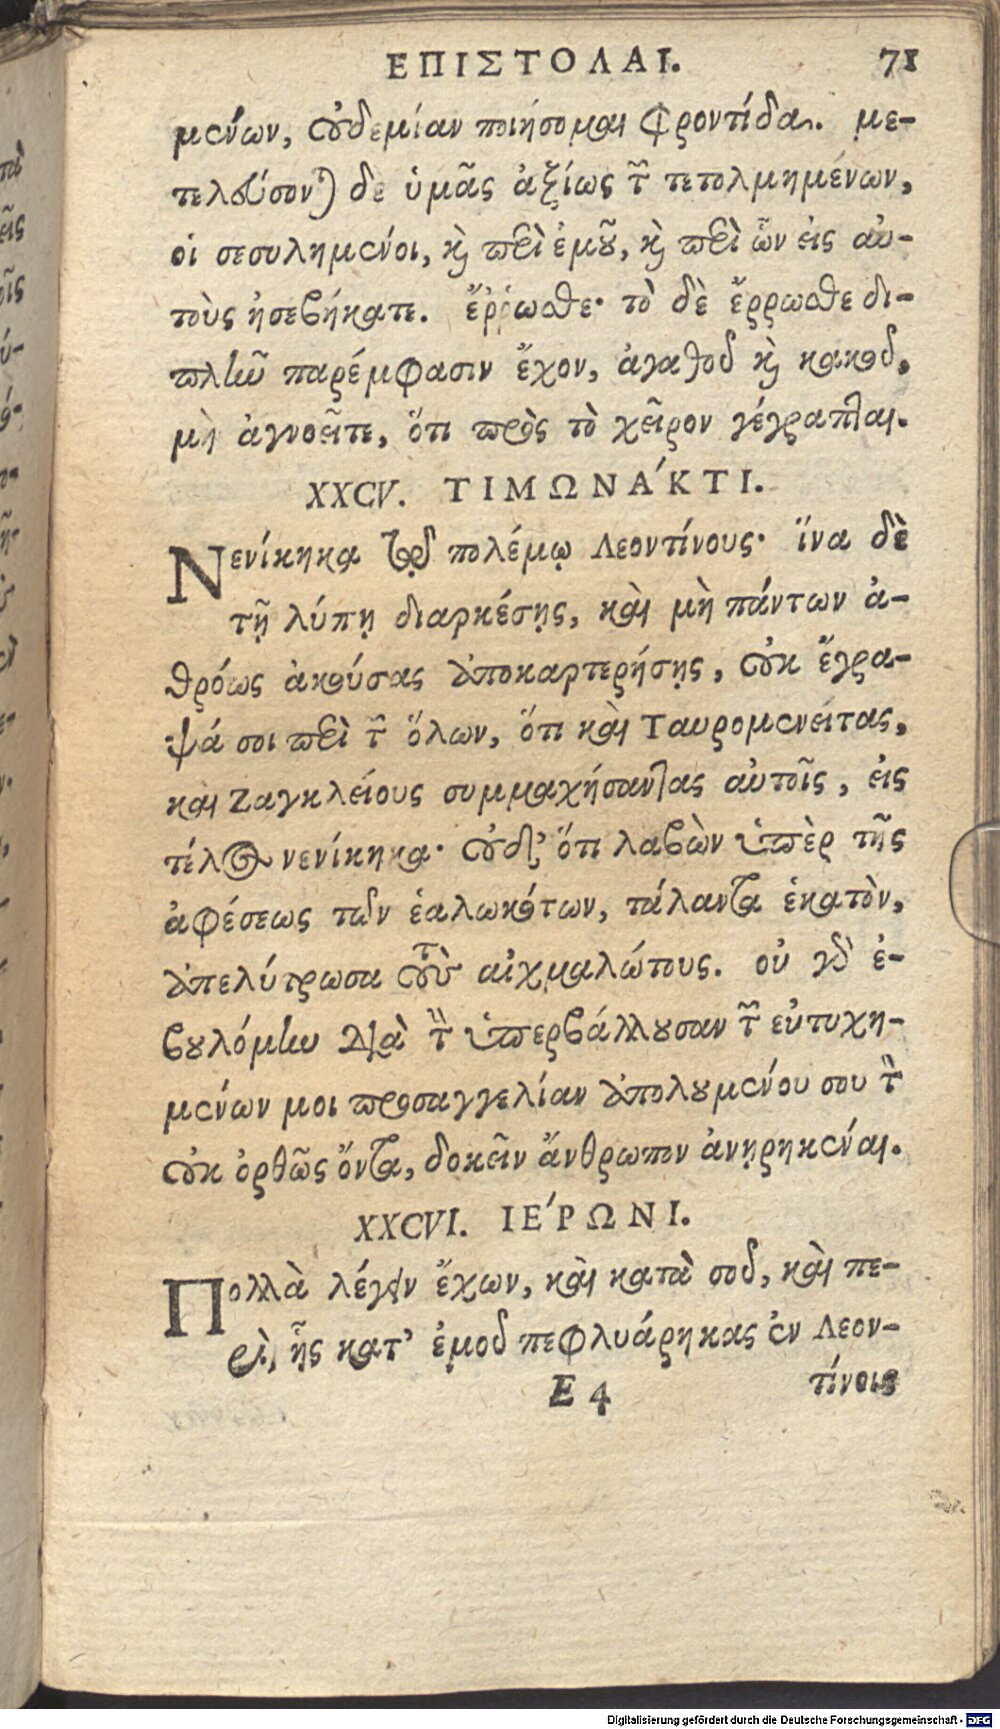 ΕΠΙΣΤΟΛΑΙ. 71
μένων, οὐδεμίαν ποιήσομαι φροντίδα. με-
τελεύσονται δὲ ὑμᾶς ἀξίως τῶν τετολμημένων,
οἱ σεσυλημένοι, καὶ περὶ ἐμοῦ, καὶ περὶ ὧν εἰς αὐ-
τοὺς ἠσεβήκατε. ἔῤῥωσθε· τὸ δὲ ἔρρωσθε δι-
πλῆν παρέμφασιν ἔχον, ἀγαθοῦ καὶ κακοῦ,
μὴ ἀγνοεῖτε, ὅτι πρὸς τὸ χεῖρον γέγραπται.
XXCV. ΤΙΜΩΝΆΚΤΙ.
Νενίκηκα τῷ πολέμῳ Λεοντίνους· ἵνα δὲ
τῇ λύπῃ διαρκέσῃς, καὶ μὴ πάντων ἀ-
θρόως ἀκούσας ἀποκαρτερήσῃς, οὐκ ἔγρα-
ψά σοι περὶ τῶν ὅλων, ὅτι καὶ Ταυρομενείτας,
καὶ Ζαγκλείους συμμαχήσαντας αὐτοῖς, εἰς
τέλος νενίκηκα· οὐδ' ὅτι λαβὼν ὑπὲρ τῆς
ἀφέσεως τῶν ἑαλωκότων, τάλαντα ἑκατὸν,
ἀπελύτρωσα τοὺς αἰχμαλώτους. οὐ γὰρ ἐ-
βουλόμην διὰ τὴν ὑπερβάλλουσαν τῶν εὐτυχη-
μένων μοι προσαγγελίαν ἀπολουμένου σου τὸν
οὐκ ὀρθῶς ὄντα, δοκεῖν ἄνθρωπον ἀνῃρηκέναι.
XXCVI. ΙΈΡΩΝΙ.
Πολλὰ λέγειν ἔχων, καὶ κατὰ σοῦ, καὶ πε-
ρὶ ἧς κατ' ἐμοῦ πεφλυάρηκας ἐν Λεον-
E 4 τίνοις
Digitalisierung gefördert durch die Deutsche Forschungsgemeinschaft - DFG